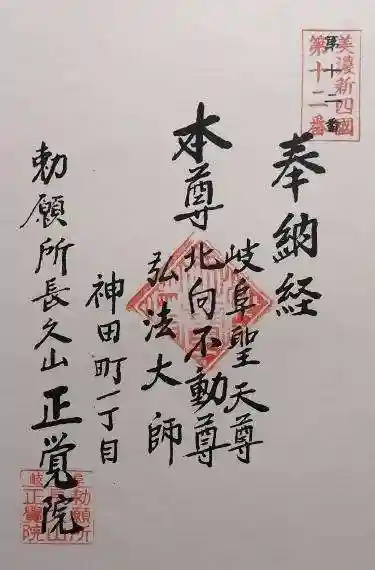 美濃新四國
第十二番
奉納経
岐阜聖天尊
本尊北向不動尊
弘法大師
神田町一丁目
勅願所長久山正覚院
勅願所
岐
正覺院